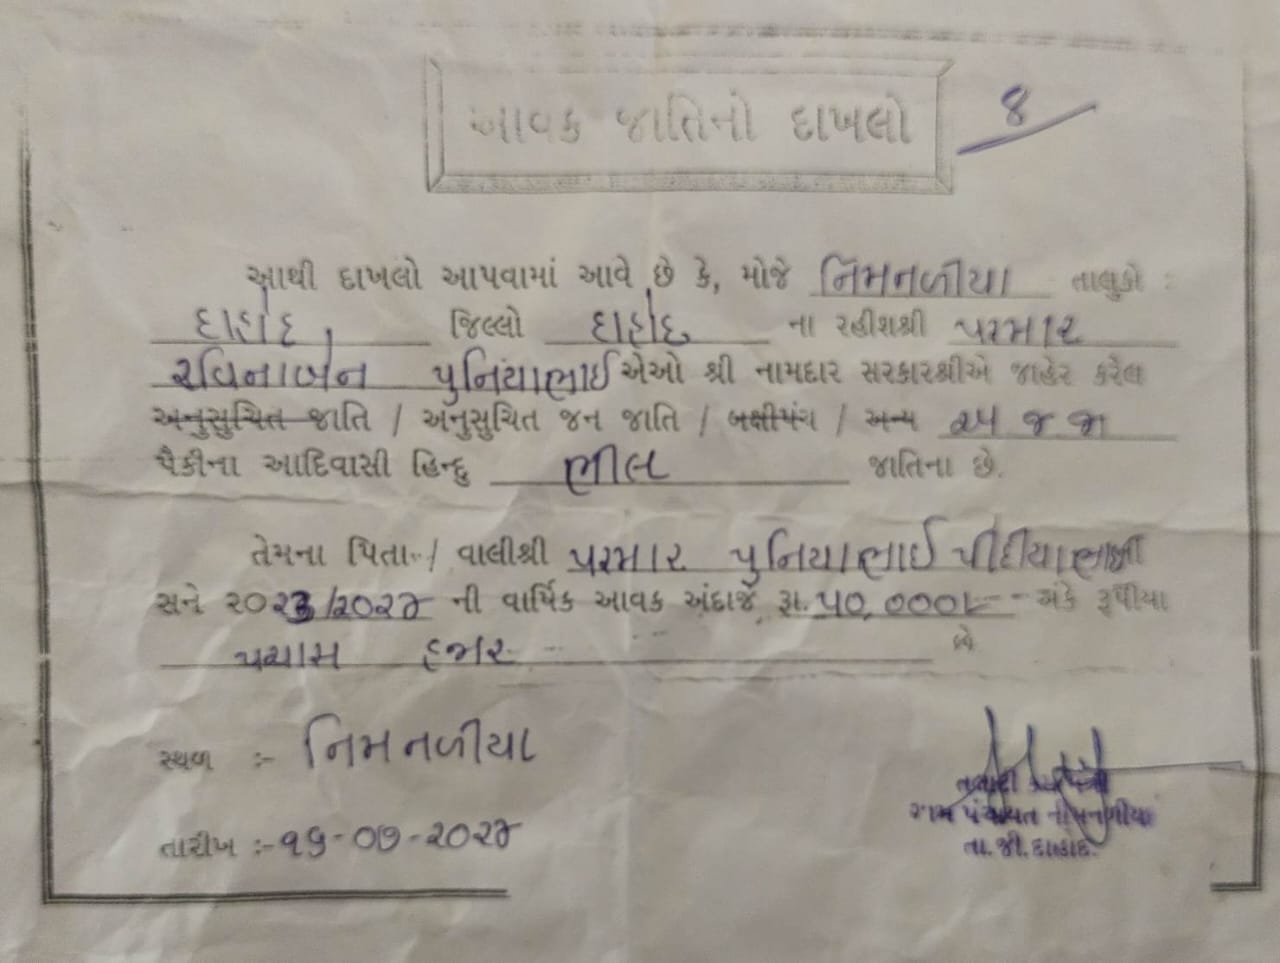 આવક જાતિનો દાખલો
૪
આથી દાખલો આપવામાં આવે છે કે, મોજે નિમનળીયા તાલુકો :
દાહોદ, જિલ્લો દાહોદ ના રહીશશ્રી પરમાર
રવિનાબેન પુનિયાભાઈ એઓ શ્રી નામદાર સરકારશ્રીએ જાહેર કરેલ
અનુસુચિત જાતિ / અનુસુચિત જન જાતિ / બક્ષીપંચ / અન્ય ૨૫ જ જા
પૈકીના આદિવાસી હિન્દુ ભીલ જાતિના છે.
તેમના પિતા / વાલીશ્રી પરમાર પુનિયાભાઈ
સને ૨૦૨૩/૨૦૨૪ ની વાર્ષિક આવક અંદાજે રૂા. ૫૦,૦૦૦/- અંકે રૂપીયા
પચાસ હજાર છે
સ્થળ :- નિમનળીયા
તારીખ :- ૧૬-૦૭-૨૦૨૪
તલાટી કમ મંત્રી
ગ્રામ પંચાયત નીમનળીયા
તા.જી.દાહોદ.